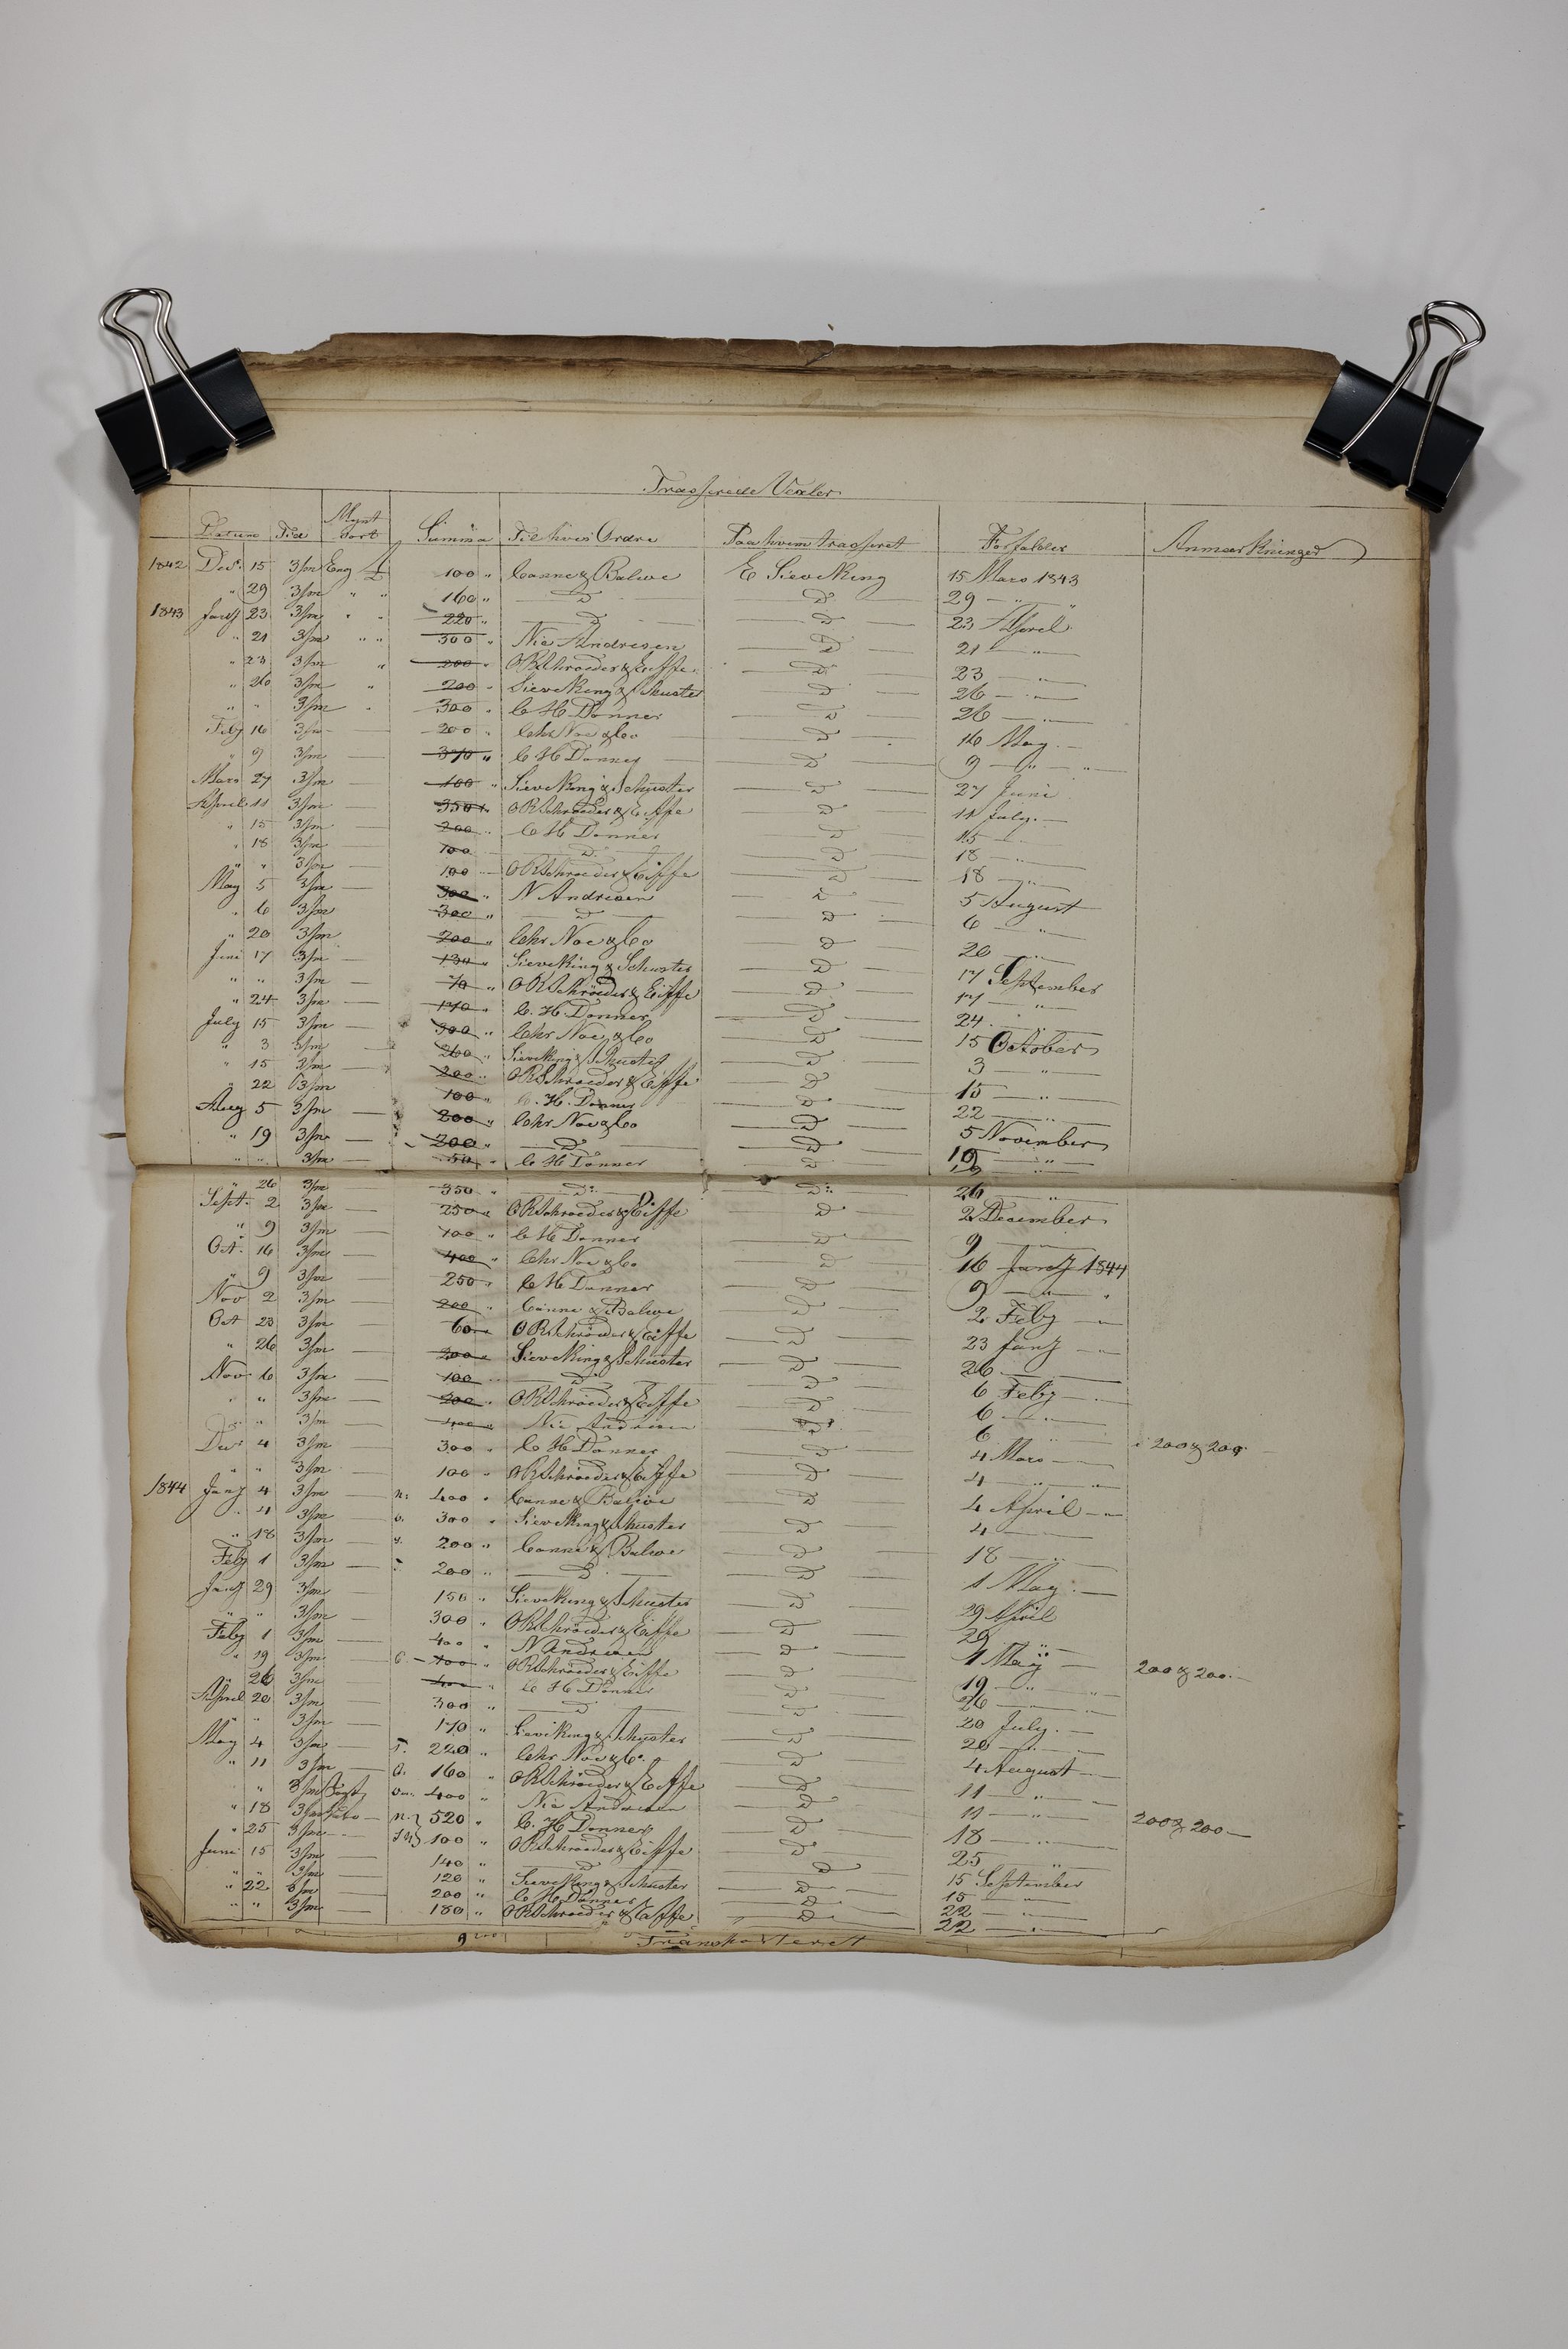 Trasserede Vexler
Datum Tid Mynt Sort Summa Til hvis Ordre Paa hvem trasseret Forfalder Anmærkninger
1842 Decr. 15 3/m Eng £ 100 " Canne & Balwe E Sieveking 15 Mars 1843
" 29 3/m " " 160 " D D 29 — "
1843 Janÿ 23 3/m " " 220 " D D 23 April
" 21 3/m " " 300 " Nic Andresen D 21 — "
" 23 3/m " 200 " O R Schroeder & Eiffe D 23 — "
" 26 3/m " 200 " Sieveking & Schuster D 26 — "
" " 3/m " 300 " C H Donner D 26 — "
Feby 16 3/m 200 " Chr Noe & Co D 16 May
" 9 3/m — 370 " C H Donner D 9 — "
Mars 27 3/m — 100 " Sieveking & Schuster D 27 Juni
April 11 3/m — 350 " O R Schroeder & Eiffe D 11 July
" 15 3/m — 200 " C H Donner D 15 — "
" 18 3/m — 100 D D 18 — "
" " 3/m 100 O R Schroeder & Eiffe D 18 — "
May 5 3/m — 300 " N Andresen D 5 August
" 6 3/m 300 " D D 6 — "
" 20 3/m 200 " Chr Noe & Co D 20 — "
Juni 17 3/m — 130 " Sieveking & Schuster D 17 September
" " 3/m — 70 " O R Schröeder & Eiffe D 17 — "
" 24 3/m — 170 " C. H Donner D 24 — "
July 15 3/m — 300 " Chr Noe & Co D 15 October
" 3 3/m — 260 " Sieveking & Schuster D 3 — "
" 15 3/m 200 " O R Schroeder & Eiffe D 15 — "
" 22 3/m 100 " C. H. Donner D 22 — "
Aug 5 3/m — 200 " Chr Noe & Co D 5 November
" 19 3/m — 200 " D D 19 — "
" " 3/m 50 " C H Donner D 19 — "
" 26 3/m 350 " D: D: 26 — "
Sept. 2 3/m — 250 " O R Schroeder & Eiffe D 2 December
" 9 3/m — 100 " C H Donner D 9 — "
Oct. 16 3/m — 400 " Chr Noe & Co D 16 Janÿ 1844
" 9 3/m — 250 " C H Donner D 9 — "
Nov 2 3/m — 200 " Canne & Balwe D 2 Feby —
Oct 23 3/m — 60 " O R Schröeder & Eiffe D 23 Janÿ
" 26 3/m — 200 " Sieveking & Schuster D 26 —
Nov 6 3/m — 100 D D 6 Feby —
" " 3/m — 200 " O R Schroeder & Eiffe D 6 — "
" " 3/m — 400 " Nic Andresen D 6 — " 200 & 200
Decr 4 3/m — 300 " C H Donner D 4 Mars —
" " 3/m — 100 " O R Schroeder & Eiffe D 4 — "
1844 Janÿ 4 3/m — 400 " Canne & Balwe D 4 April —
" 4 3/m — 300 " Sieveking & Schuster D 4 —
" 18 3/m — 200 " Canne & Balwe D 18 — "
Feby 1 3/m — 200 " D D 1 May —
Janÿ 29 3/m — 150 " Sieveking & Schuster D 29 April
" " 3/m — 300 " O R Schröeder & Eiffe D 29 "
Feby 1 3/m — 400 " N Andresen D 1 May — 200 & 200
" 19 3/m — 400 " O R Schroeder & Eiffe D 19 — "
" 26 3/m — 400 " C H Donner D 26 — "
April 20 3/m — 300 " D D 20 July
" " 3/m — 170 " Sieveking & Schuster D 20 — "
May 4 3/m — 220 " Chr Noe & Co D 4 August —
" 11 3/m — 160 " O R Schröeder & Eiffe D 11 — "
" " 3/m 400 " Nic Andresen D 11 — " 200 & 200
" 18 3/m 520 " C. H Donner D 18 — "
" 25 3/m — 100 " O R Schroeder & Eiffe D 25 "
Juni 15 3/m — 140 " D D 15 September
" " 3/m — 120 " Sieveking & Schuster D 15 — "
" 22 3/m — 200 " C H Donner D 22 — "
" " 3/m — 180 " O R Schroeder & Eiffe D 22 — "
Transporteret